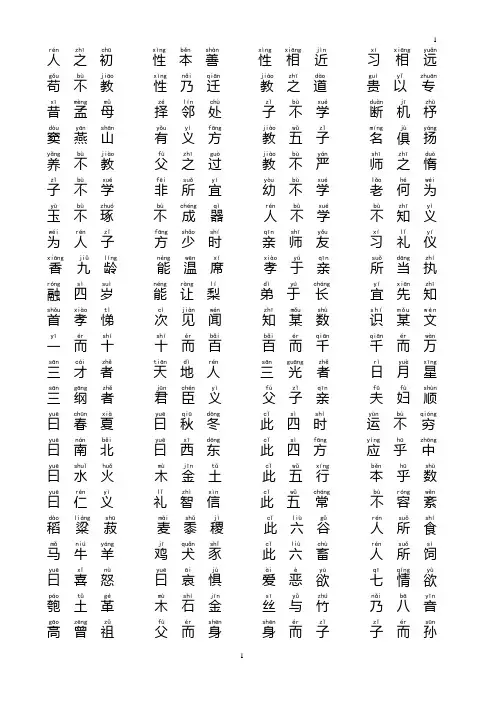 1
rén zhī chū xìng běn shàn xìng xiāng jìn xí xiāng yuǎn
人之初 性本善 性相近 习相远
gǒu bù jiào xìng nǎi qiān jiào zhī dào guì yǐ zhuān
苟不教 性乃迁 教之道 贵以专
xī mèng mǔ zé lín chù zǐ bù xué duàn jī zhù
昔孟母 择邻处 子不学 断机杼
dòu yān shān yǒu yì fāng jiào wǔ zǐ míng jù yáng
窦燕山 有义方 教五子 名俱扬
yǎng bù jiào fù zhī guò jiào bù yán shī zhī duò
养不教 父之过 教不严 师之惰
zǐ bù xué fēi suǒ yí yòu bù xué lǎo hé wéi
子不学 非所宜 幼不学 老何为
yù bù zhuó bù chéng qì rén bù xué bù zhī yì
玉不琢 不成器 人不学 不知义
wéi rén zǐ fāng shào shí qīn shī yǒu xí lǐ yí
为人子 方少时 亲师友 习礼仪
xiāng jiǔ líng néng wēn xí xiào yú qīn suǒ dāng zhí
香九龄 能温席 孝于亲 所当执
róng sì suì néng ràng lí dì yú zhǎng yí xiān zhī
融四岁 能让梨 弟于长 宜先知
shǒu xiào tì cì jiàn wén zhī mǒu shù shí mǒu wén
首孝悌 次见闻 知某数 识某文
yī ér shí shí ér bǎi bǎi ér qiān qiān ér wàn
一而十 十而百 百而千 千而万
sān cái zhě tiān dì rén sān guāng zhě rì yuè xīng
三才者 天地人 三光者 日月星
sān gāng zhě jūn chén yì fù zǐ qīn fū fù shùn
三纲者 君臣义 父子亲 夫妇顺
yuē chūn xià yuē qiū dōng cǐ sì shí yùn bù qióng
曰春夏 曰秋冬 此四时 运不穷
yuē nán běi yuē xī dōng cǐ sì fāng yìng hū zhōng
曰南北 曰西东 此四方 应乎中
yuē shuǐ huǒ mù jīn tǔ cǐ wǔ xíng běn hū shù
曰水火 木金土 此五行 本乎数
yuē rén yì lǐ zhì xìn cǐ wǔ cháng bù róng wěn
曰仁义 礼智信 此五常 不容紊
dào liáng shū mài shǔ jì cǐ liù gǔ rén suǒ shí
稻粱菽 麦黍稷 此六谷 人所食
mǎ niú yáng jī quǎn shǐ cǐ liù chù rén suǒ sì
马牛羊 鸡犬豕 此六畜 人所饲
yuē xǐ nù yuē āi jù ài è yù qī qíng yù
曰喜怒 曰哀惧 爱恶欲 七情欲
páo tǔ gé mù shí jīn sī yǔ zhú nǎi bā yīn
匏土革 木石金 丝与竹 乃八音
gāo zēng zǔ fù ér shēn shēn ér zǐ zǐ ér sūn
高曾祖 父而身 身而子 子而孙
1